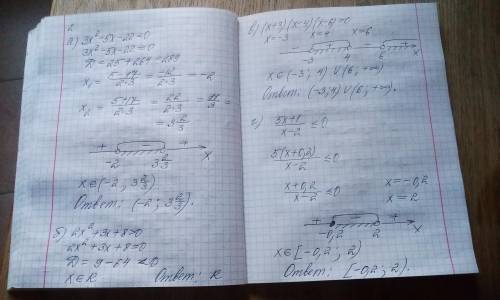 а) 3x² - 5x - 22 = 0
3x² - 5x - 22 = 0
D = 25 + 264 = 289
x₁ = (5 - 17)/(2·3) = -12/(2·3) = -2
x₂ = (5 + 17)/(2·3) = 22/(2·3) = 11/3 =
= 3 2/3
+ - +
-2 3 2/3 x
x ∈ (-2; 3 2/3)
Ответ: (-2; 3 2/3).
б) 2x² + 3x + 8 > 0
2x² + 3x + 8 = 0
D = 9 - 64 < 0
x ∈ R. Ответ: R
в) (x+3)(x-4)(x-6) = 0
x = -3 x = 4 x = 6
- + - +
-3 4 6 x
x ∈ (-3; 4) ∪ (6; +∞)
Ответ: (-3; 4) ∪ (6; +∞).
г) (5x+1)/(x-2) ≤ 0
5(x+0,2)/(x-2) ≤ 0
(x+0,2)/(x-2) ≤ 0 x = -0,2
x = 2
+ - +
-0,2 2 x
x ∈ [-0,2; 2)
Ответ: [-0,2; 2).